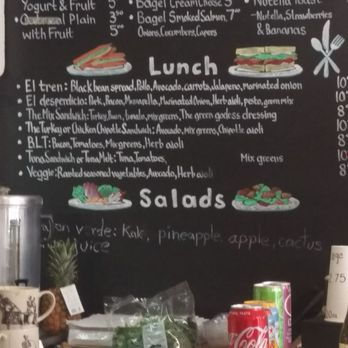 Yogurt & Fruit 5
• Bagel Cream Cheese 5
• Nutella Toast
• Oatmeal Plain 3.00
• Bagel Smoked Salmon, 7
-Nutella, Strawberries
with Fruit 5.00
Onions, Cucumbers, Capers
& Bananas
Lunch
• El tren: Black bean spread, Pollo, Avocado, carrots, Jalapeno, marinated onion
• El desperdicio: Pork, Bacon, Marinated Onion, Herb aioli, pesto, green mix
• The Mix Sandwich: Turkey, Ham, tomato, mix greens, The green goddess dressing
• The Turkey or Chicken Chipotle Sandwich: Avocado, mix greens, Chipotle aioli
• BLT: Bacon, Tomatoes, Mix greens, Herb aioli
• Tuna Sandwich or Tuna Melt: Tuna, Tomatoes, Mix greens
• Veggie: Roasted seasoned vegetables, Avocado, Herb aioli
Salads
verde: Kale, pineapple, apple, cactus
juice
Coca-Cola